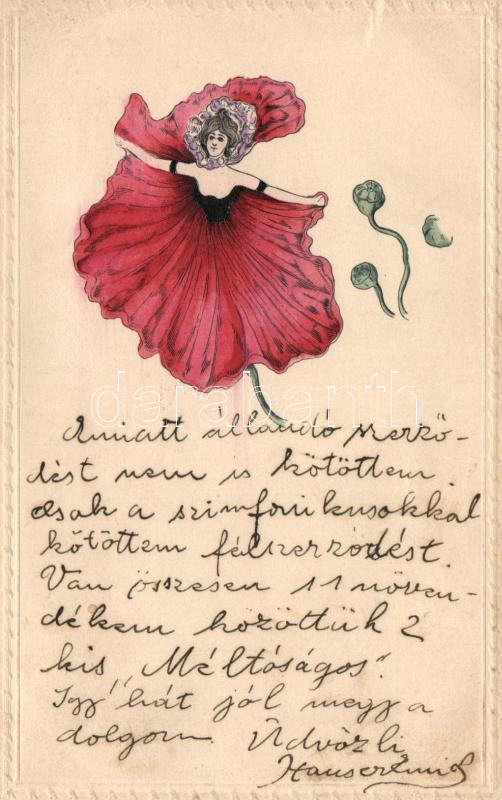 darabanth
Emiatt állandó szerző-
dést nem is kötöttem
csak a szimfonikusokkal
kötöttem félszerződést.
Van összesen 11 növen-
dékem közöttük 2
kis „Méltóságos".
Így hát jól megy a
dolgom. Üdvözli
Hauser Emil